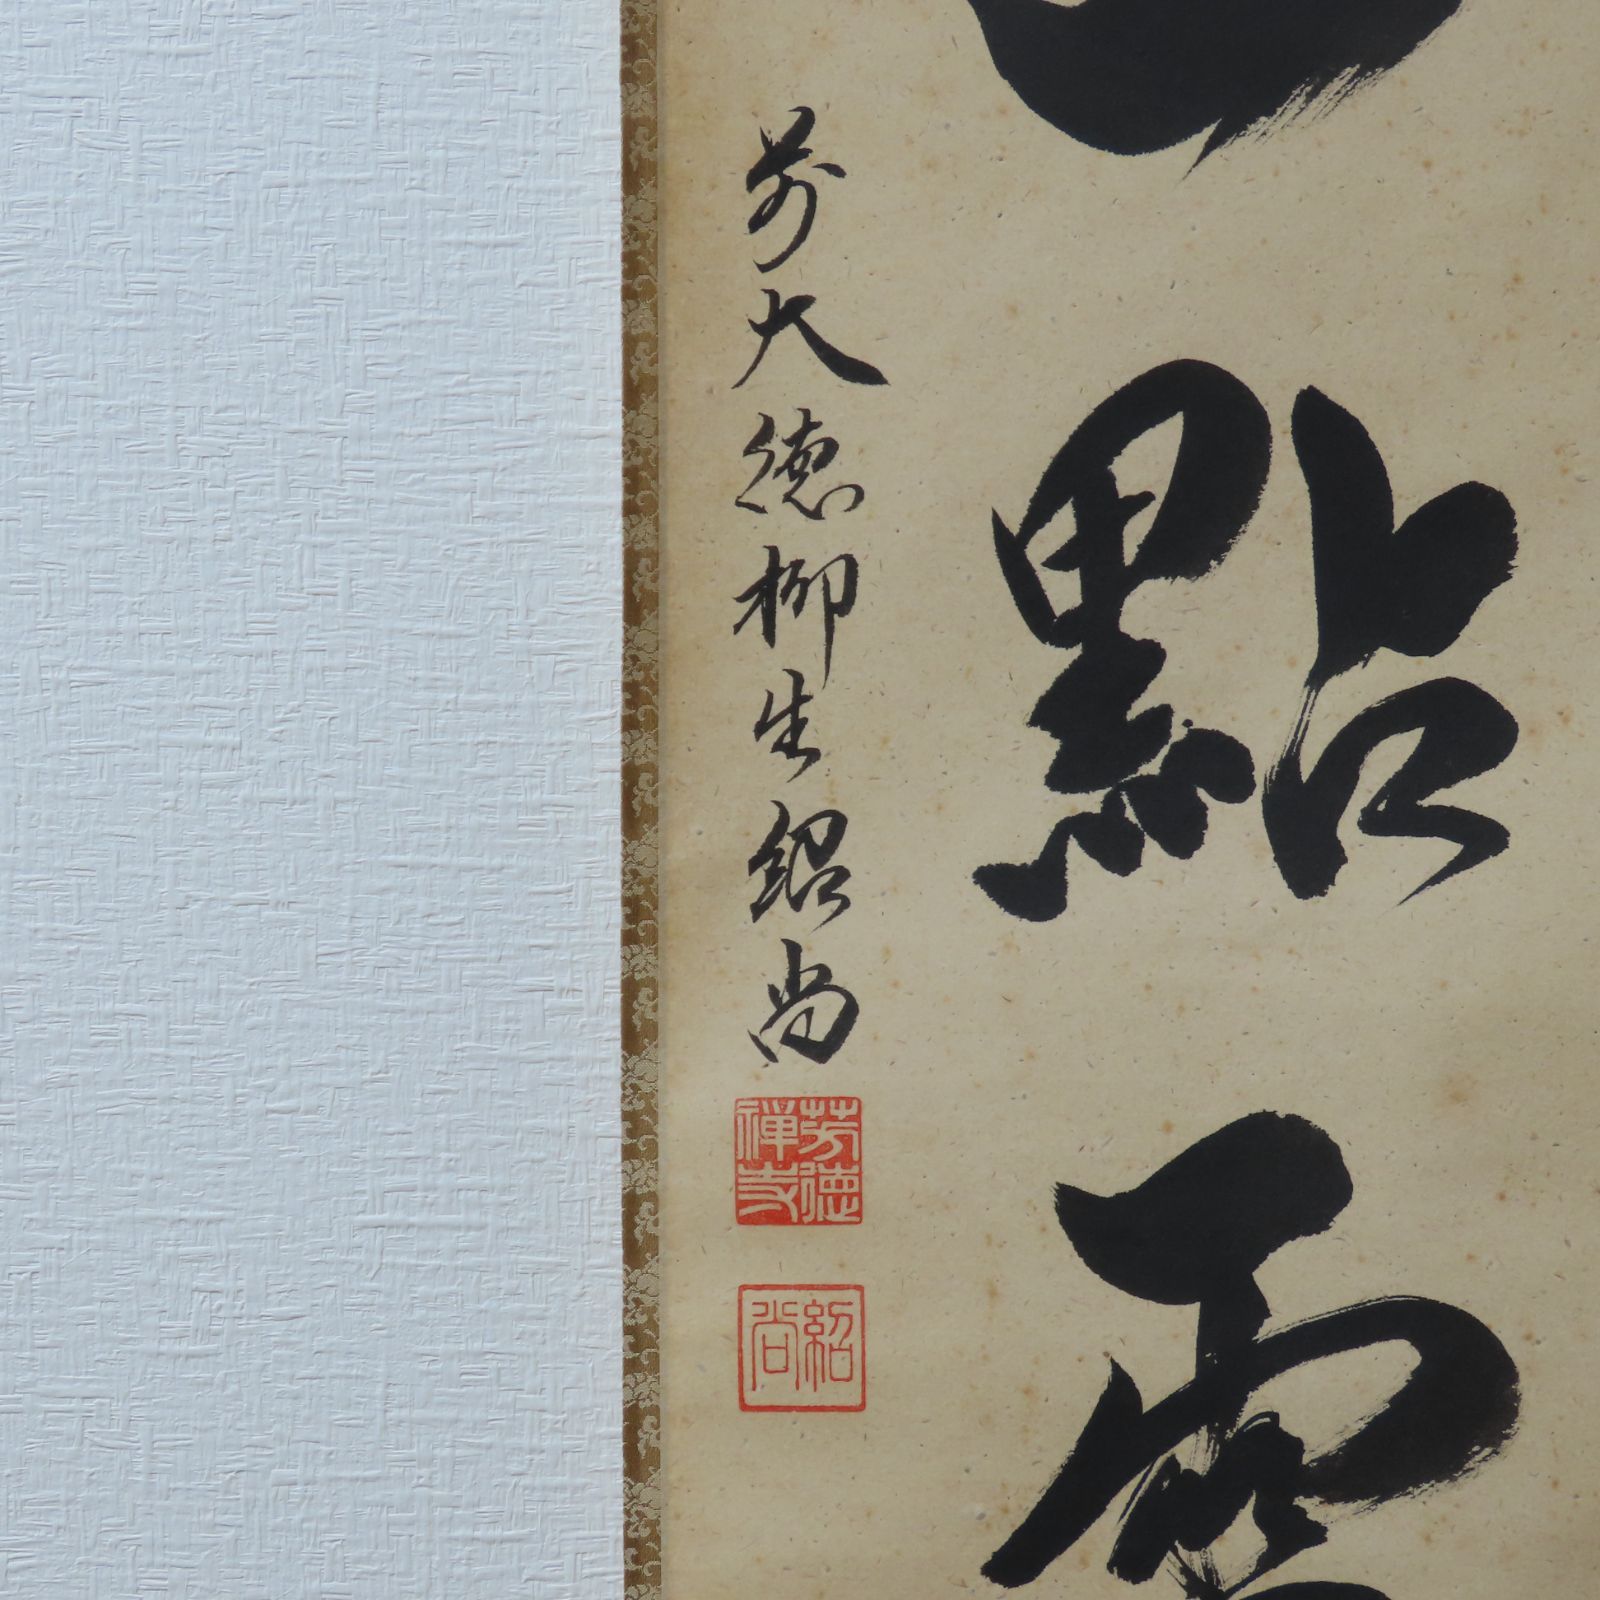 一點雪
前大徳柳生紹尚
芳徳
禅寺
紹尚